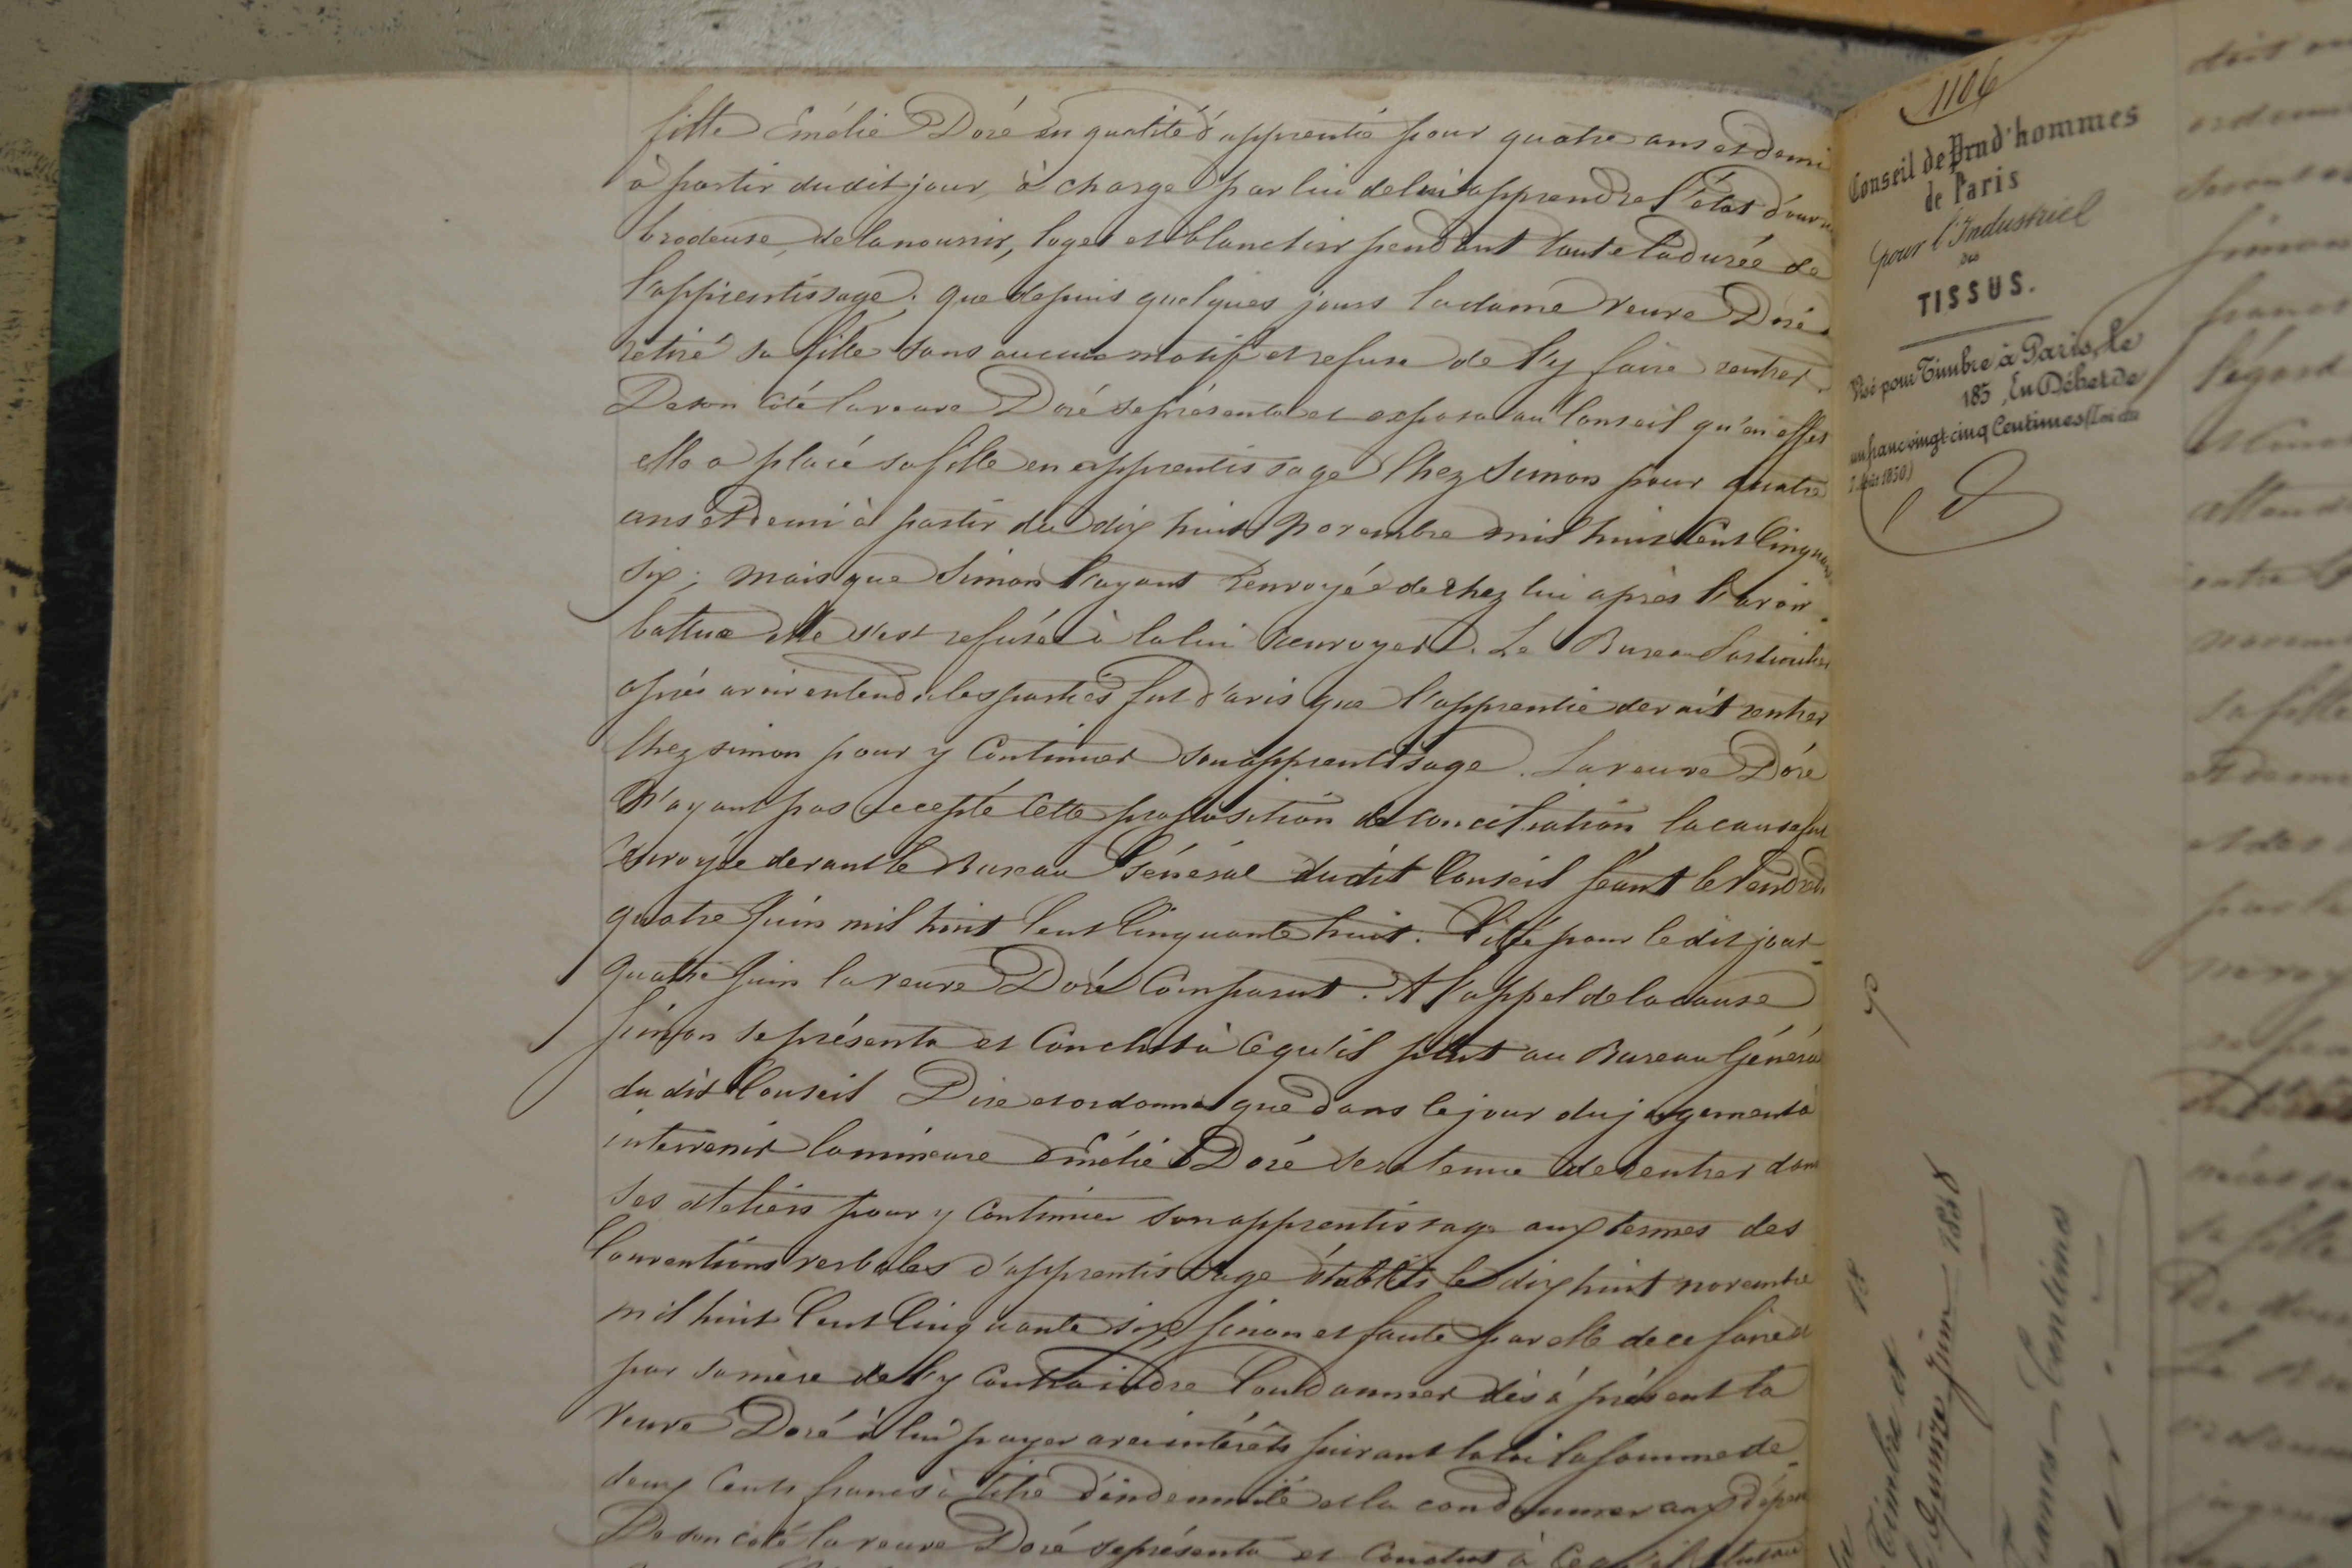 fille Emélie Doré en qualité d'apprentie pour quatre ans et demi
à partir dudit jour, à charge par lui de lui apprendre l'état d'ouvr
brodeuse, de la nourrir, loger et blanchir pendant toute la durée de
l'apprentissage; que depuis quelques jours la dame veuve Doré a
retiré sa fille sans aucun motif et refuse de l'y faire rentrer.
De son côté la veuve Doré se présenta et exposa au Conseil qu'en effet
elle a placé sa fille en apprentissage Chez Simon pour quatre
ans et demi à partir du dix huit Novembre mil huit Cent Cinquante
six; mais que Simon l'ayant renvoyée de chez lui après l'avoir
battue elle s'est refusée à la lui renvoyer. Le Bureau Particulier
après avoir entendu les parties fut d'avis que l'apprentie devait rentrer
Chez Simon pour y Continuer son apprentissage. La veuve Doré
N'ayant pas accepté Cette proposition de conciliation la cause fut
renvoyée devant le Bureau Général dudit Conseil séant le Vendredi
quatre Juin mil huit Cent Cinquante huit. Citée pour le dit jour
quatre Juin la veuve Doré Comparut. A l'appel de la cause
Simon se présenta et Conclut à Ce qu'il plut au Bureau Général
du dit Conseil Dire et ordonner que dans le jour du jugement à
intervenir la mineure Emélie Doré sera tenue de rentrer dans
ses ateliers pour y Continuer son apprentissage aux termes des
Conventions verbales d'apprentissage établies le dix huit novembre
mil huit Cent Cinquante six, sinon et faute par elle de ce faire et
par sa mère de l'y Contraindre Condamner dès à présent la
veuve Doré à lui payer avec intérêts suivant la loi la somme de
deux Cents francs à titre d'indemnité et la condamner aux dépens
De son côté la veuve Doré se présenta et Conclut à Ce qu'il plut au
1106
Conseil de Prud'hommes
de Paris
pour l'Industriel
des
TISSUS.
Visé pour Timbre à Paris, le
185 , En Débet de
un franc vingt-cinq Centimes (Loi du
7 Août 1850)
doit
ordonn
Simon
francs
l'égard
attendu
entre
novem
sa fille
et demi
et de
par la
sa fille
De
Le Bu
ordonn
jugem
Timbre et
Quinze Juin 1858
Centimes